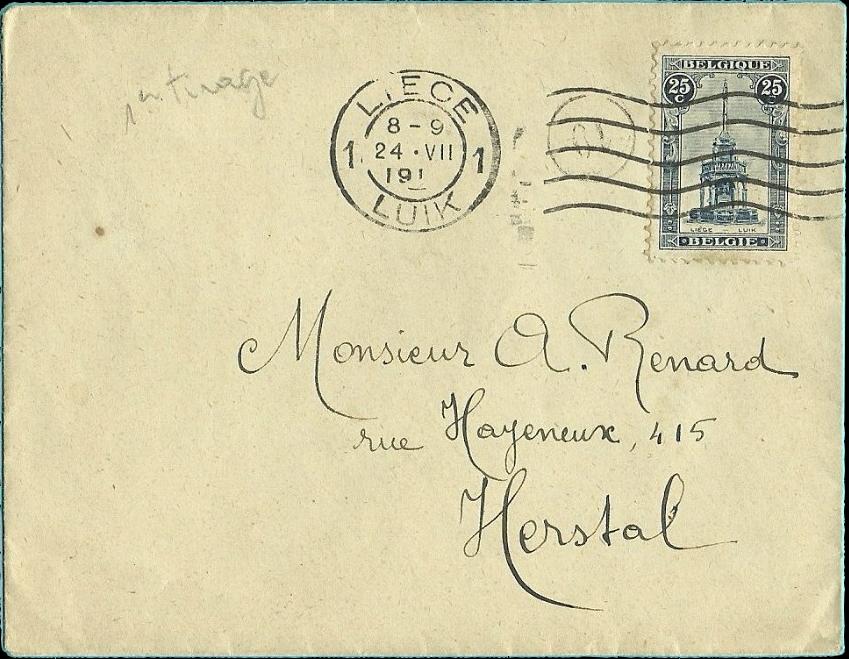 1er tirage
LIEGE
8-9
1 24·VII 1
191
LUIK
BELGIQUE
25 C 25 C
LIÈGE - LUIK
BELGIË
Monsieur A. Renard
rue Hayeneux, 415
Herstal